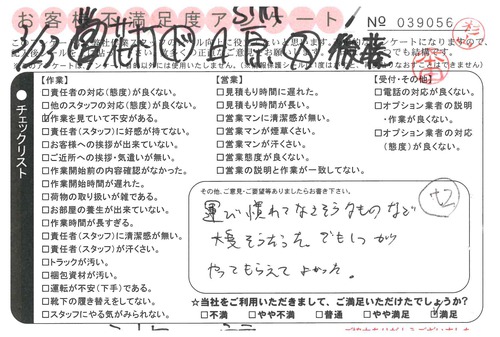 お客様不満足度アンケート
No 039056
チェックリスト
【作業】
□責任者の対応(態度)が良くない。
□他のスタッフの対応(態度)が良くない。
□作業を見ていて不安がある。
□責任者(スタッフ)に好感が持てない。
□お客様への挨拶が出来ていない。
□ご近所への挨拶・気遣いが無い。
□作業開始前の内容確認がなかった。
□作業開始時間が遅れた。
□荷物の取り扱いが雑である。
□お部屋の養生が出来ていない。
□作業時間が長すぎる。
□責任者(スタッフ)に清潔感が無い。
□責任者(スタッフ)が汗くさい。
□トラックが汚い。
□梱包資材が汚い。
□運転が不安(下手)である。
□靴下の履き替えをしてない。
□スタッフにやる気がみられない。
【営業】
□見積もり時間に遅れた。
□見積もり時間が長い。
□営業マンに清潔感が無い。
□営業マンが煙草くさい。
□営業マンが汗くさい。
□営業態度が良くない。
□営業の説明と作業が一致してない。
【受付・その他】
□電話の対応が良くない。
□オプション業者の説明
・作業が良くない。
□オプション業者の対応
(態度)が良くない。
その他、ご意見・ご要望等ありましたらお書き下さい。
運び慣れてなさそうなものなど
大変そうだった。でもしっかり
やってもらえてよかった。
☆当社をご利用いただきまして、ご満足いただけたでしょうか?
□不満 □やや不満 □普通 □やや満足 □満足